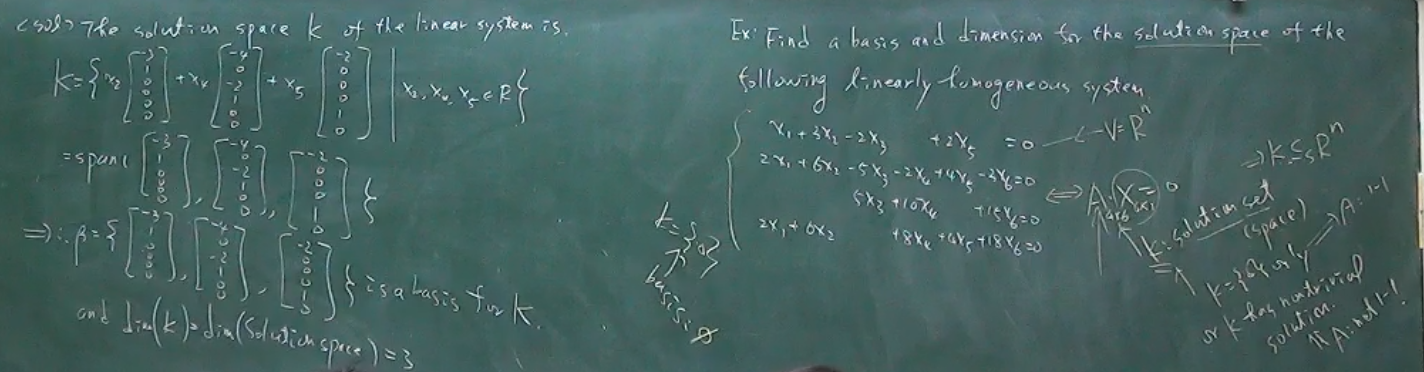 <sol> The solution space K of the linear system is.
K={x₂ [-3 1 0 0 0 0] + x₄ [-4 0 -2 1 0 0] + x₅ [-2 0 0 0 1 0] | x₂, x₄, x₅ ∈ R}
=span{ [-3 1 0 0 0 0], [-4 0 -2 1 0 0], [-2 0 0 0 1 0] }
⇒ ∴ β={ [-3 1 0 0 0 0], [-4 0 -2 1 0 0], [-2 0 0 0 1 0] } is a basis for K.
and dim(K)=dim(Solution space)=3
K={0}
basis: ∅
Ex: Find a basis and dimension for the solution space of the
following linearly homogeneous system
x₁+3x₂-2x₃ +2x₅ =0 ← V=Rⁿ
2x₁+6x₂-5x₃-2x₄+4x₅-3x₆=0
5x₃+10x₄ +15x₆=0
2x₁+6x₂ +8x₄+4x₅+18x₆=0
⇔ A₄ₓ₆ X₆ₓ₁ = 0
⇒ K ⊆ₛ Rⁿ
K: solution set
(space)
K={0} only ⇒ A: 1-1
or K has nontrivial
solution.
A: not 1-1.